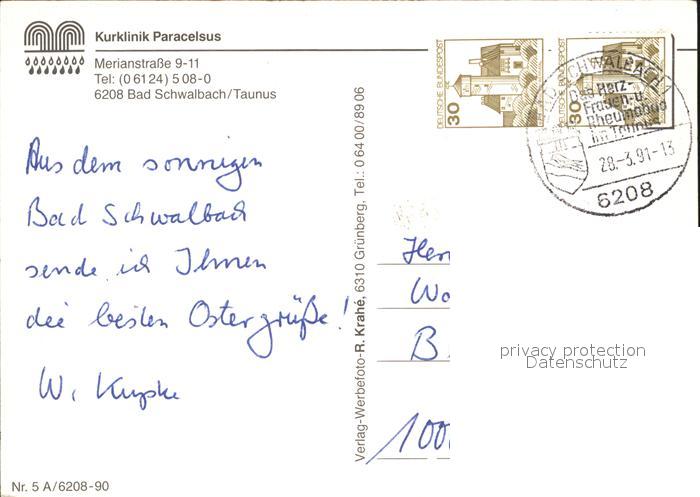 Kurklinik Paracelsus
Merianstraße 9-11
Tel: (0 61 24) 5 08-0
6208 Bad Schwalbach/Taunus
DEUTSCHE BUNDESPOST
30
DEUTSCHE BUNDESPOST
30
BAD SCHWALBACH 1
Das Herz-
Frauen-u.
Rheumabad
im Taunus
28.-3.91-13
6208
Aus dem sonnigen
Bad Schwalbach
sende ich Ihnen
die besten Ostergrüße!
Verlag-Werbefoto-R. Krahé, 6310 Grünberg, Tel.: 0 64 00/89 06
Her
Wo
B
100
privacy protection
Datenschutz
Nr. 5 A/6208-90